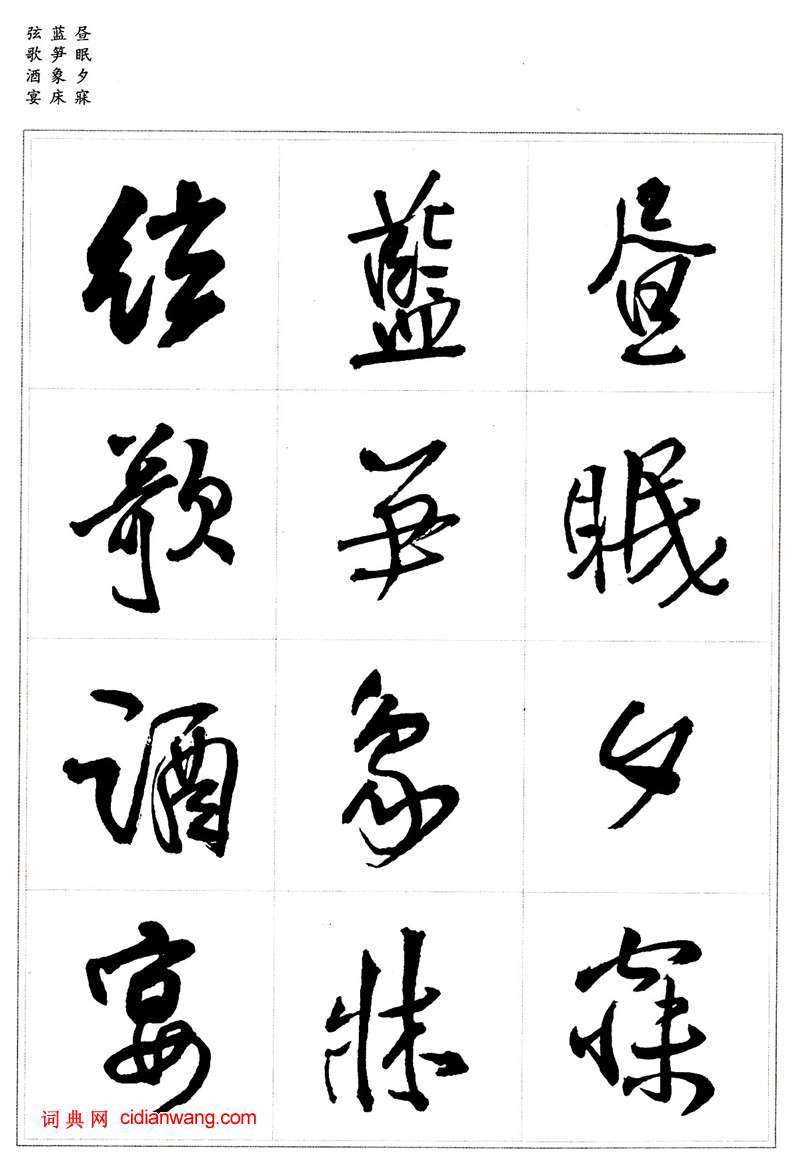 昼眠夕寐
蓝笋象床
弦歌酒宴
晝眠夕寐
藍笋象牀
絃歌酒宴
词典网 cidianwang.com